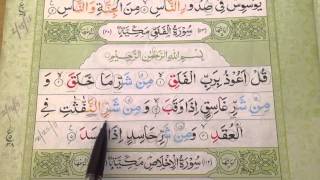 يُوَسْوِسُ فِي صُدُورِ النَّاسِ مِنَ الْجِنَّةِ وَالنَّاسِ
سُورَةُ الْفَلَقِ مَكِّيَّةٌ
بِسْمِ اللهِ الرَّحْمٰنِ الرَّحِيمِ
قُلْ أَعُوذُ بِرَبِّ الْفَلَقِ مِنْ شَرِّ مَا خَلَقَ
وَمِنْ شَرِّ غَاسِقٍ إِذَا وَقَبَ وَمِنْ شَرِّ النَّفّٰثٰتِ فِي
الْعُقَدِ وَمِنْ شَرِّ حَاسِدٍ إِذَا حَسَدَ
سُورَةُ الْإِخْلَاصِ مَكِّيَّةٌ